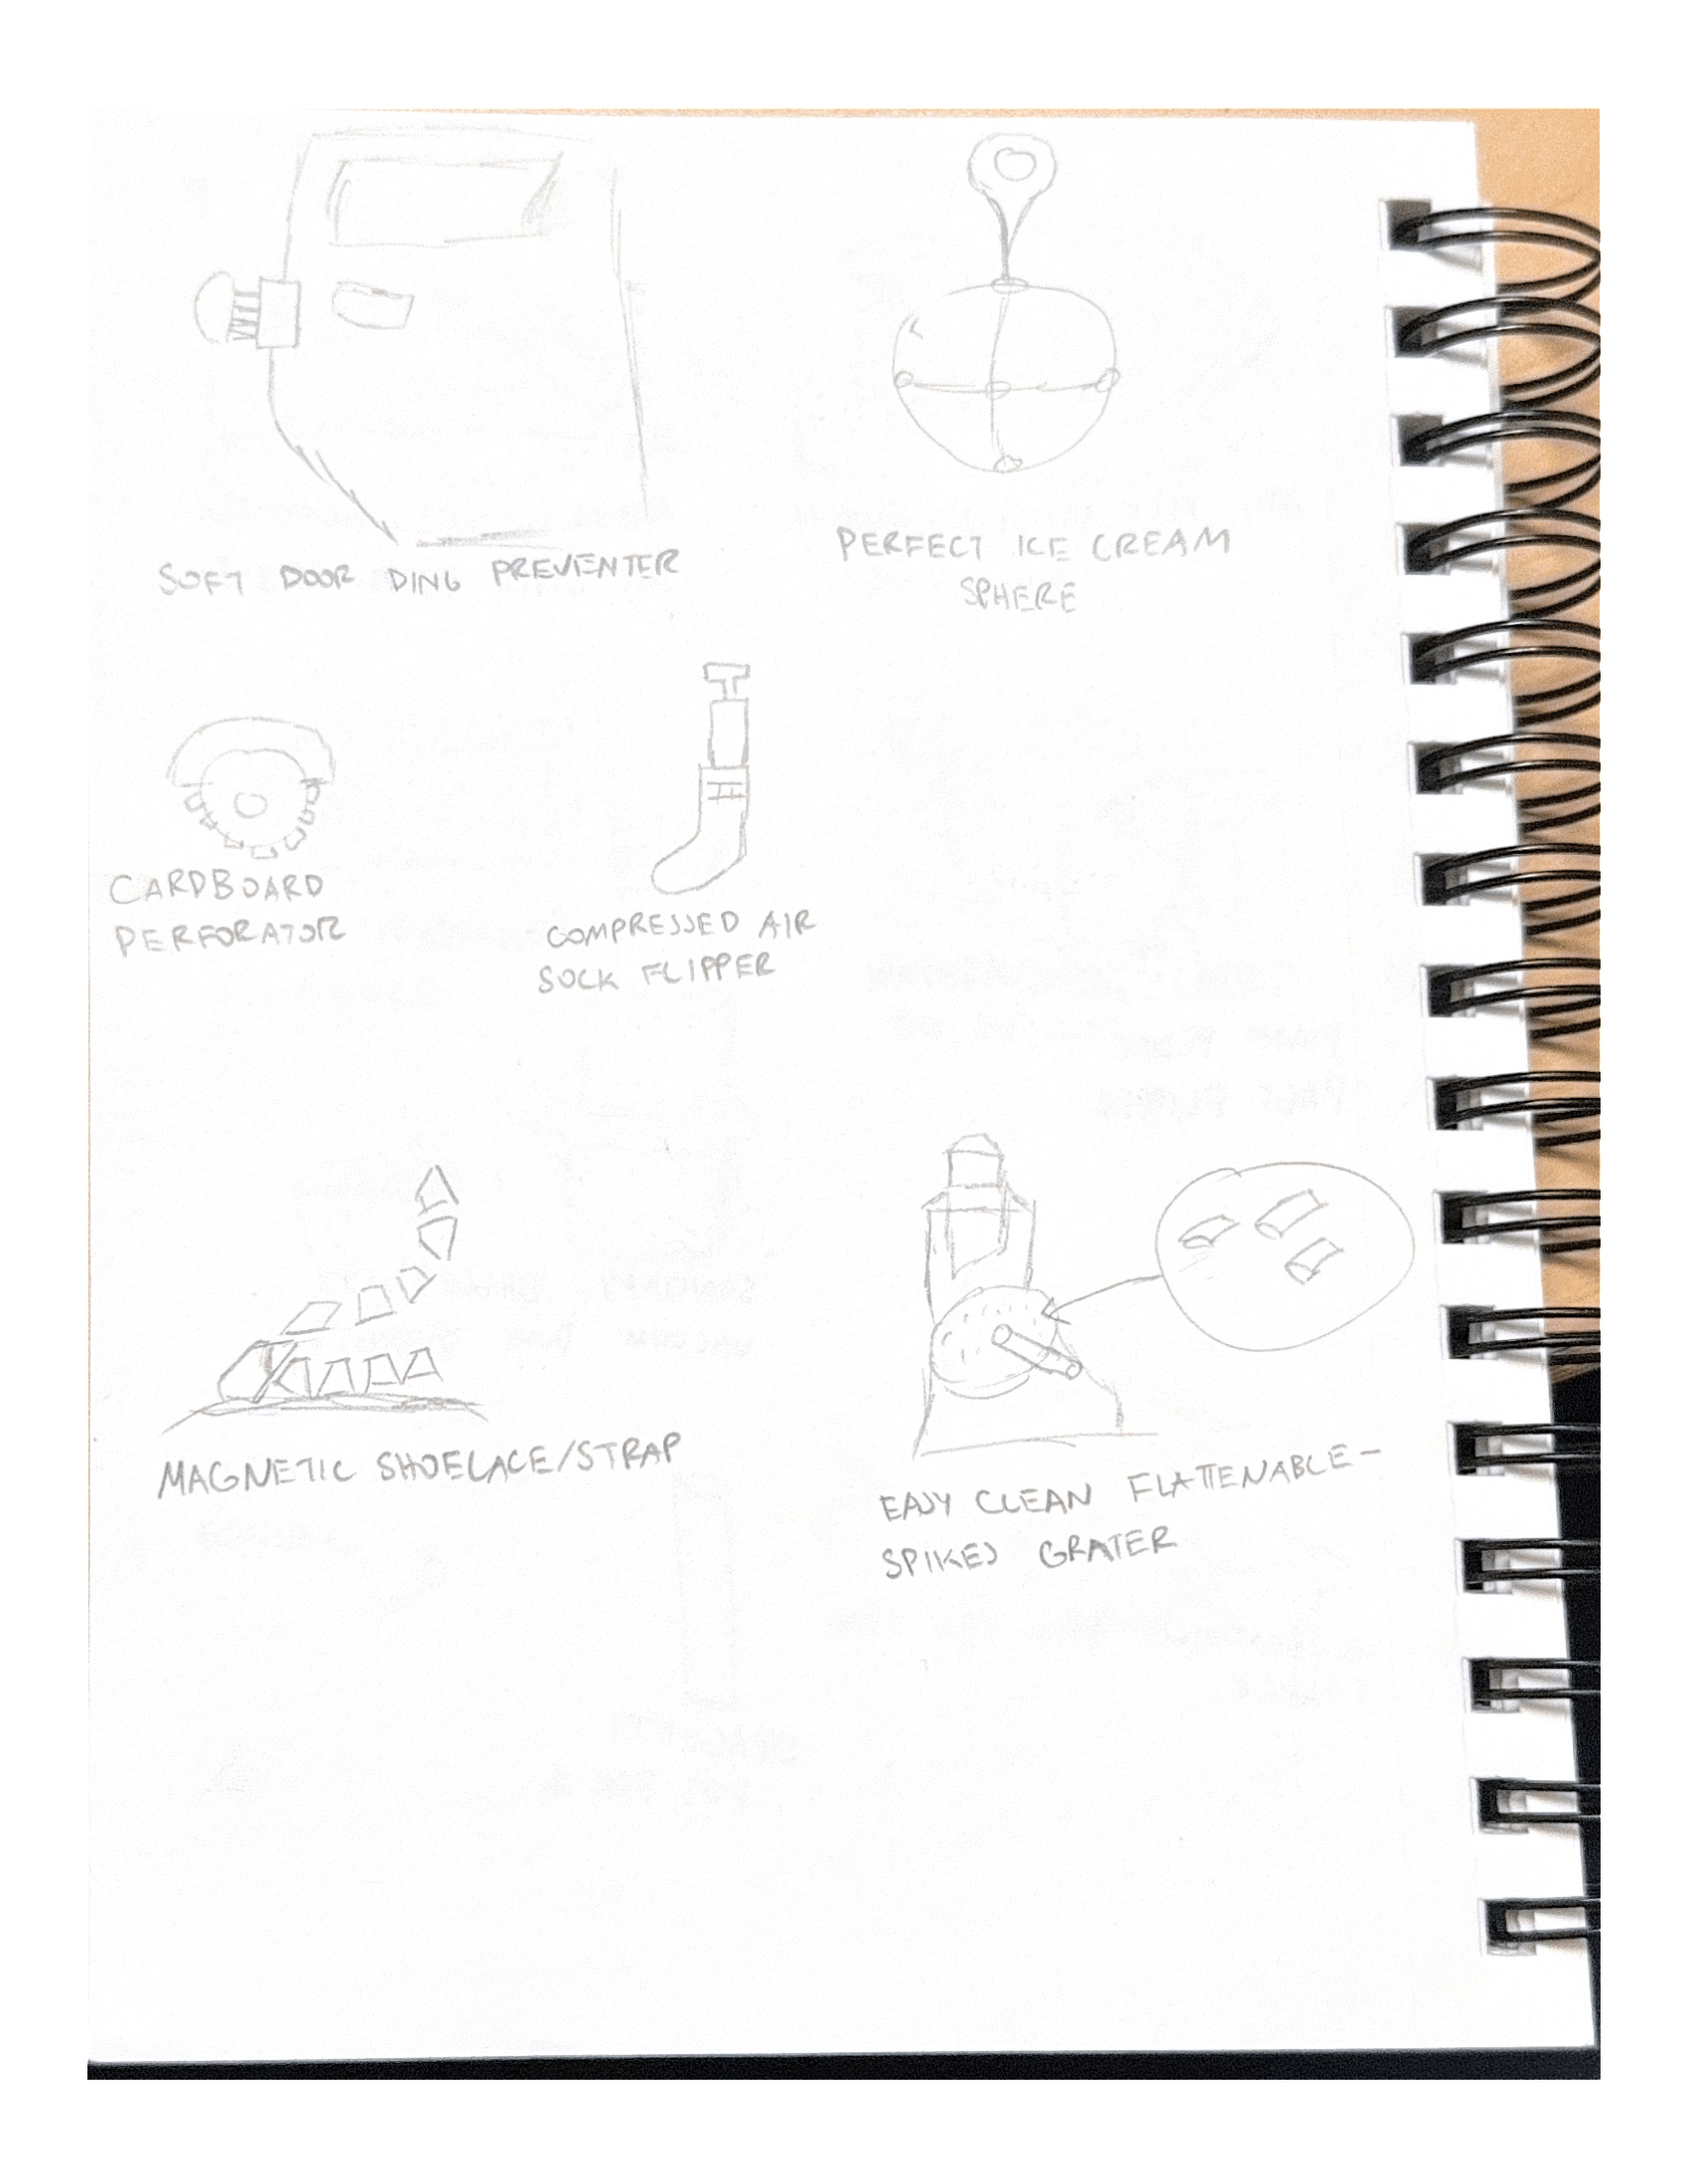 SOFT DOOR DING PREVENTER
PERFECT ICE CREAM
SPHERE
CARDBOARD
PERFORATOR
COMPRESSED AIR
SOCK FLIPPER
MAGNETIC SHOELACE/STRAP
EASY CLEAN FLATTENABLE-
SPIKES GRATER